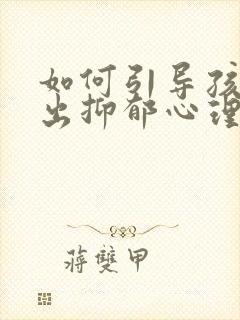 如何引导孩
出抑郁心理
蒋雙甲